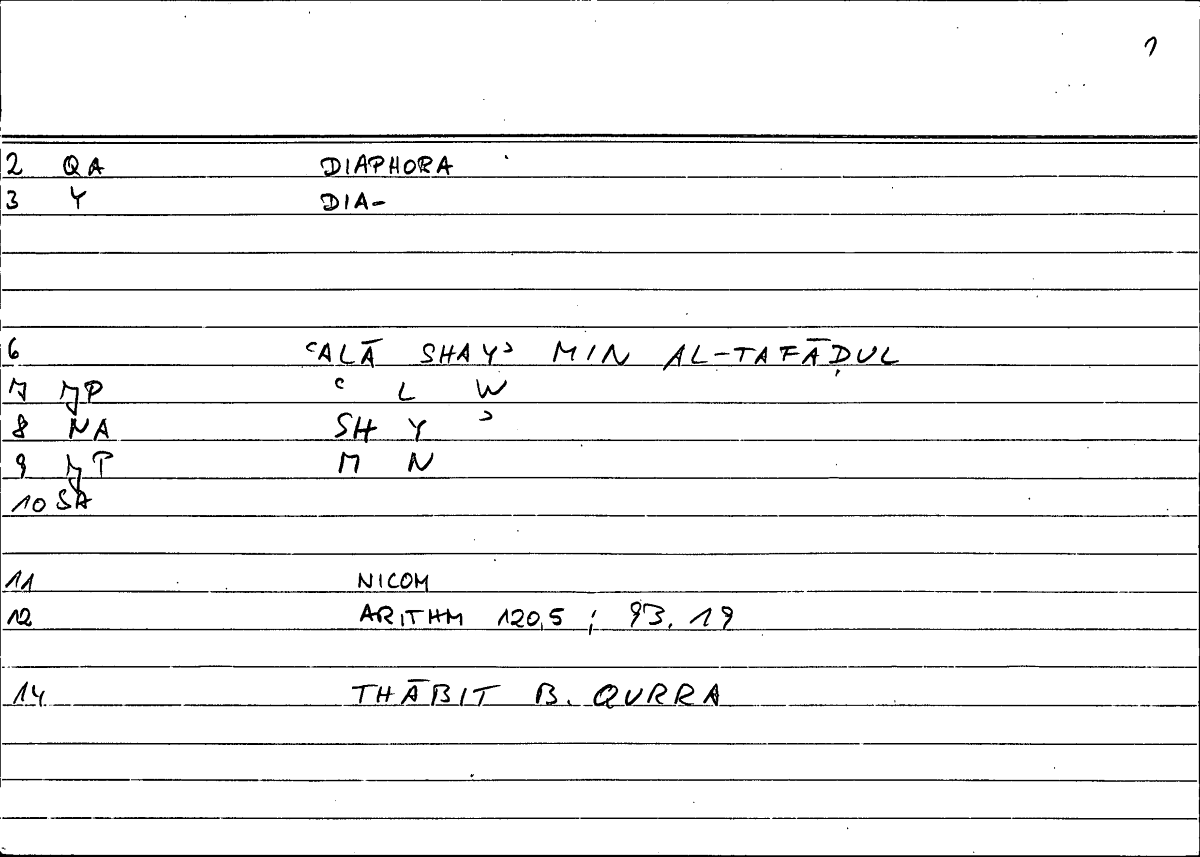 1
2 QA DIAPHORA
3 Y DIA-
6 ʿALĀ SHAYʾ MIN AL-TAFĀḌUL
7 JP ʿ L W
8 NA SH Y ʾ
9 JP M N
10 SA
11 NICOM
12 ARITHM 120,5 ; 93.19
14 THĀBIT B. QURRA